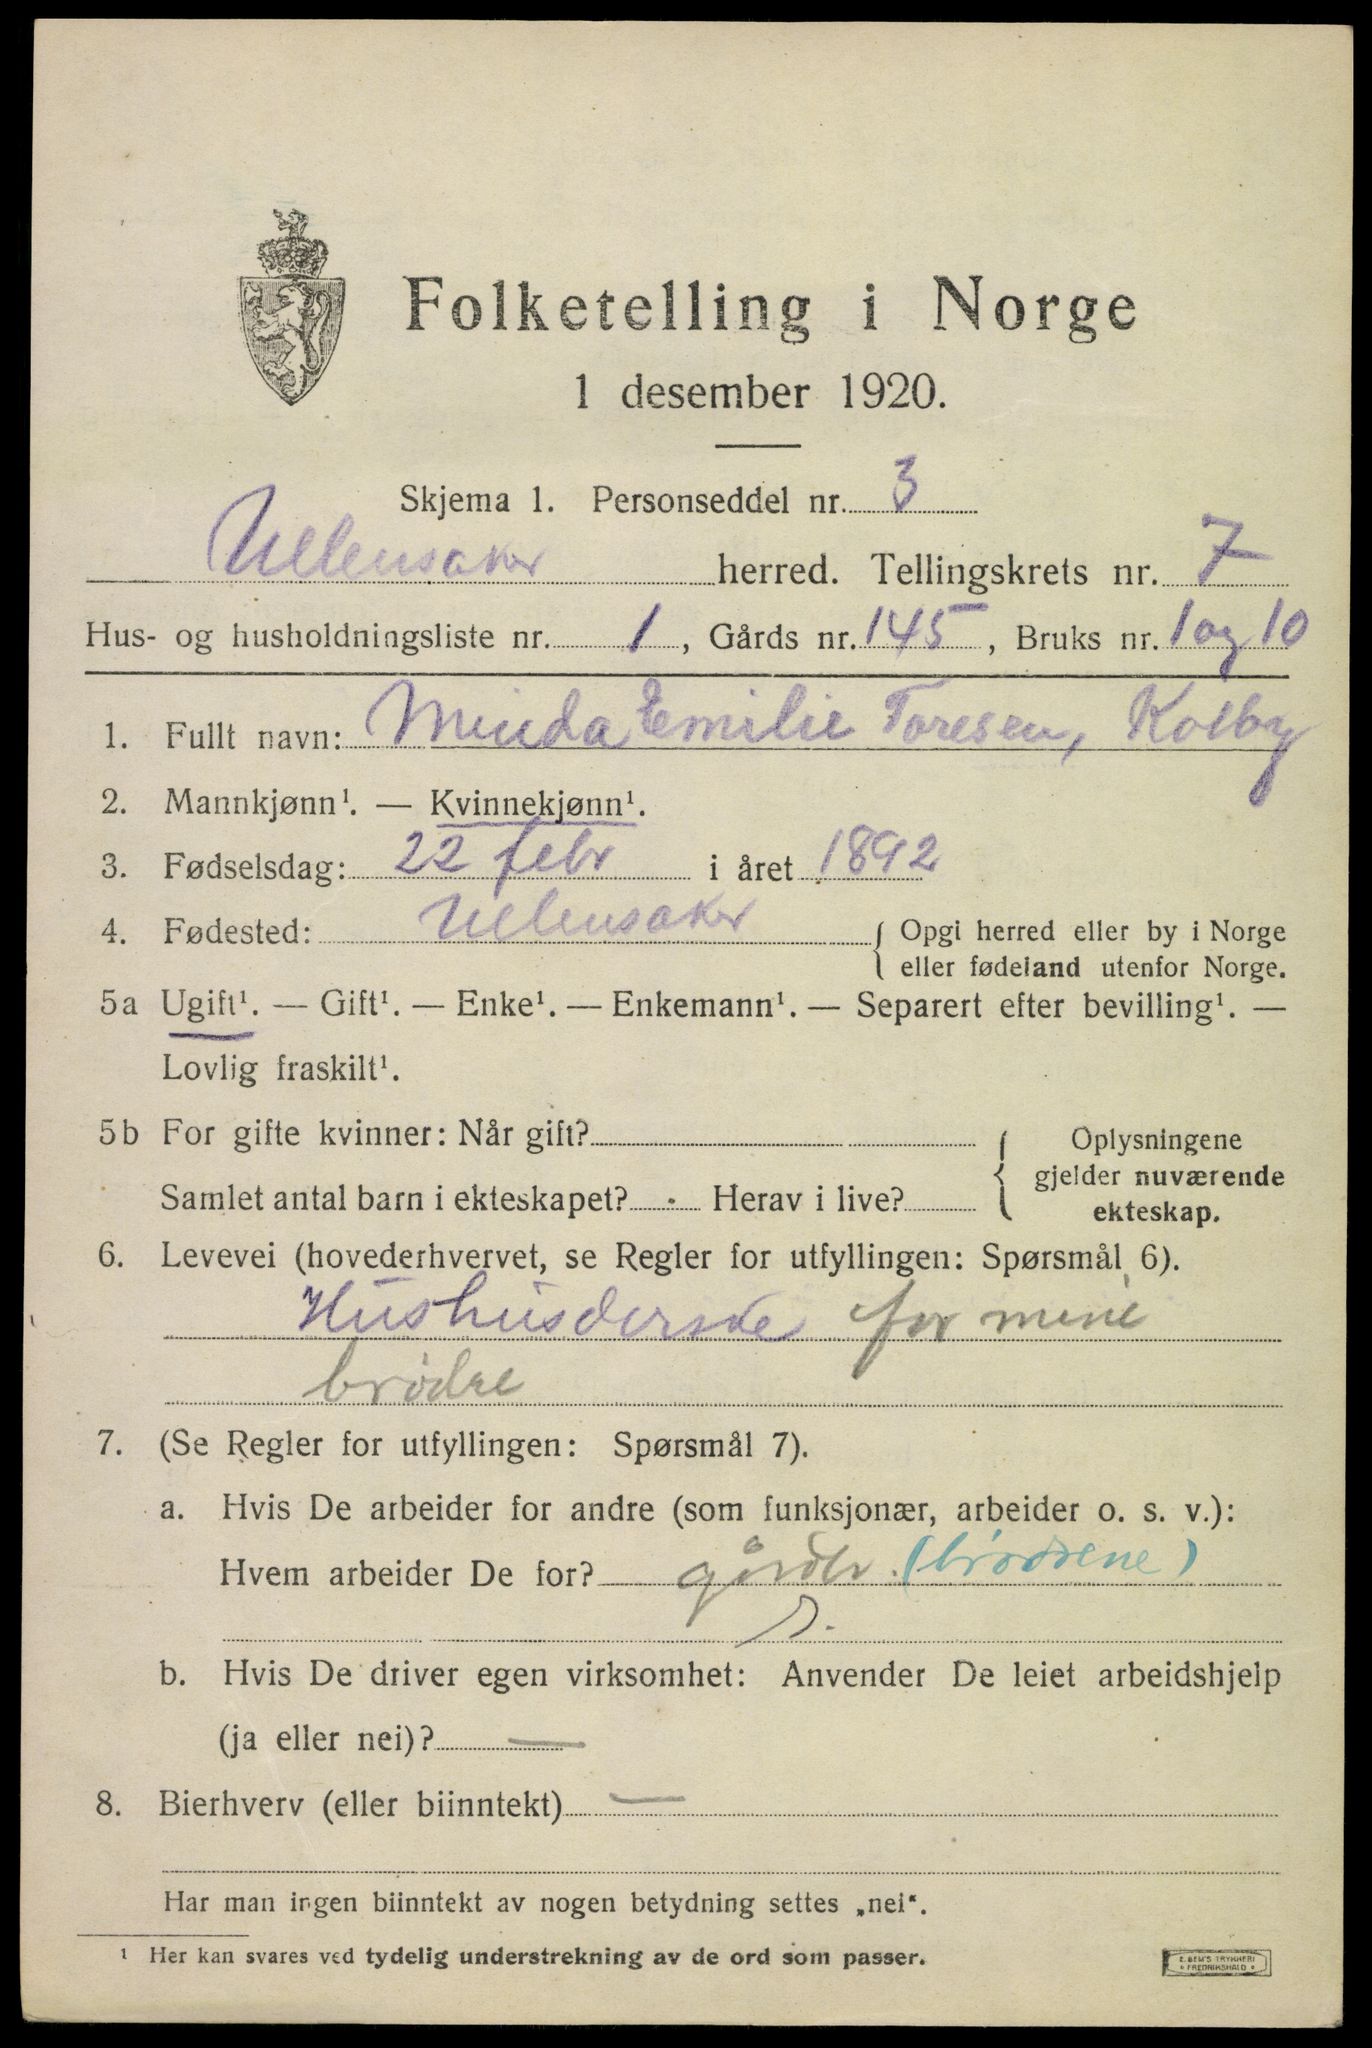 Folketelling i Norge
1 desember 1920.
Skjema 1. Personseddel nr. 3
Ullensaker herred. Tellingskrets nr. 7
Hus- og husholdningsliste nr. 1, Gårds nr. 145, Bruks nr. 1 og 10
1. Fullt navn: Minda Emilie Toresen, Kolby
2. Mannkjønn¹. — Kvinnekjønn¹.
3. Fødselsdag: 22 febr i året 1892
4. Fødested: Ullensaker { Opgi herred eller by i Norge
eller fødeland utenfor Norge.
5a Ugift¹. — Gift¹. — Enke¹. — Enkemann¹. — Separert efter bevilling¹. —
Lovlig fraskilt¹.
5b For gifte kvinner: Når gift?
Samlet antal barn i ekteskapet? - Herav i live?
{ Oplysningene
gjelder nuværende
ekteskap.
6. Levevei (hovederhvervet, se Regler for utfyllingen: Spørsmål 6).
Hushusderske for mine
brødre
7. (Se Regler for utfyllingen: Spørsmål 7).
a. Hvis De arbeider for andre (som funksjonær, arbeider o. s. v.):
Hvem arbeider De for? gårdbr. (brødrene)
b. Hvis De driver egen virksomhet: Anvender De leiet arbeidshjelp
(ja eller nei)? —
8. Bierhverv (eller biinntekt) —
Har man ingen biinntekt av nogen betydning settes „nei“.
¹ Her kan svares ved tydelig understrekning av de ord som passer.
E. SEM'S TRYKKERI
FREDRIKSHALD